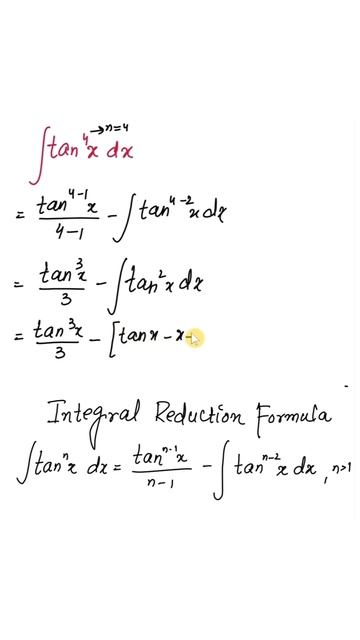 →n=4
∫tan⁴x dx
= tan⁴⁻¹x / 4-1 - ∫tan⁴⁻²x dx
= tan³x / 3 - ∫tan²x dx
= tan³x / 3 - [tan x - x -
Integral Reduction Formula
∫tanⁿx dx = tanⁿ⁻¹x / n-1 - ∫tanⁿ⁻²x dx, n>1